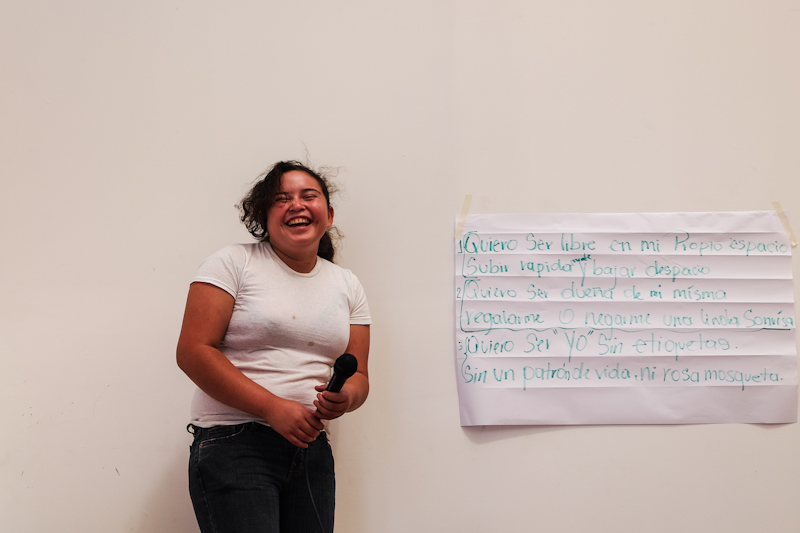 1) Quiero Ser libre en mi Propio espacio
Subir rapida y bajar despacio
2) Quiero Ser dueña de mi misma
regalarme O negarme una linda Sonrisa
3) Quiero Ser "YO" Sin etiquetas.
Sin un patrón de vida, ni rosa mosqueta.